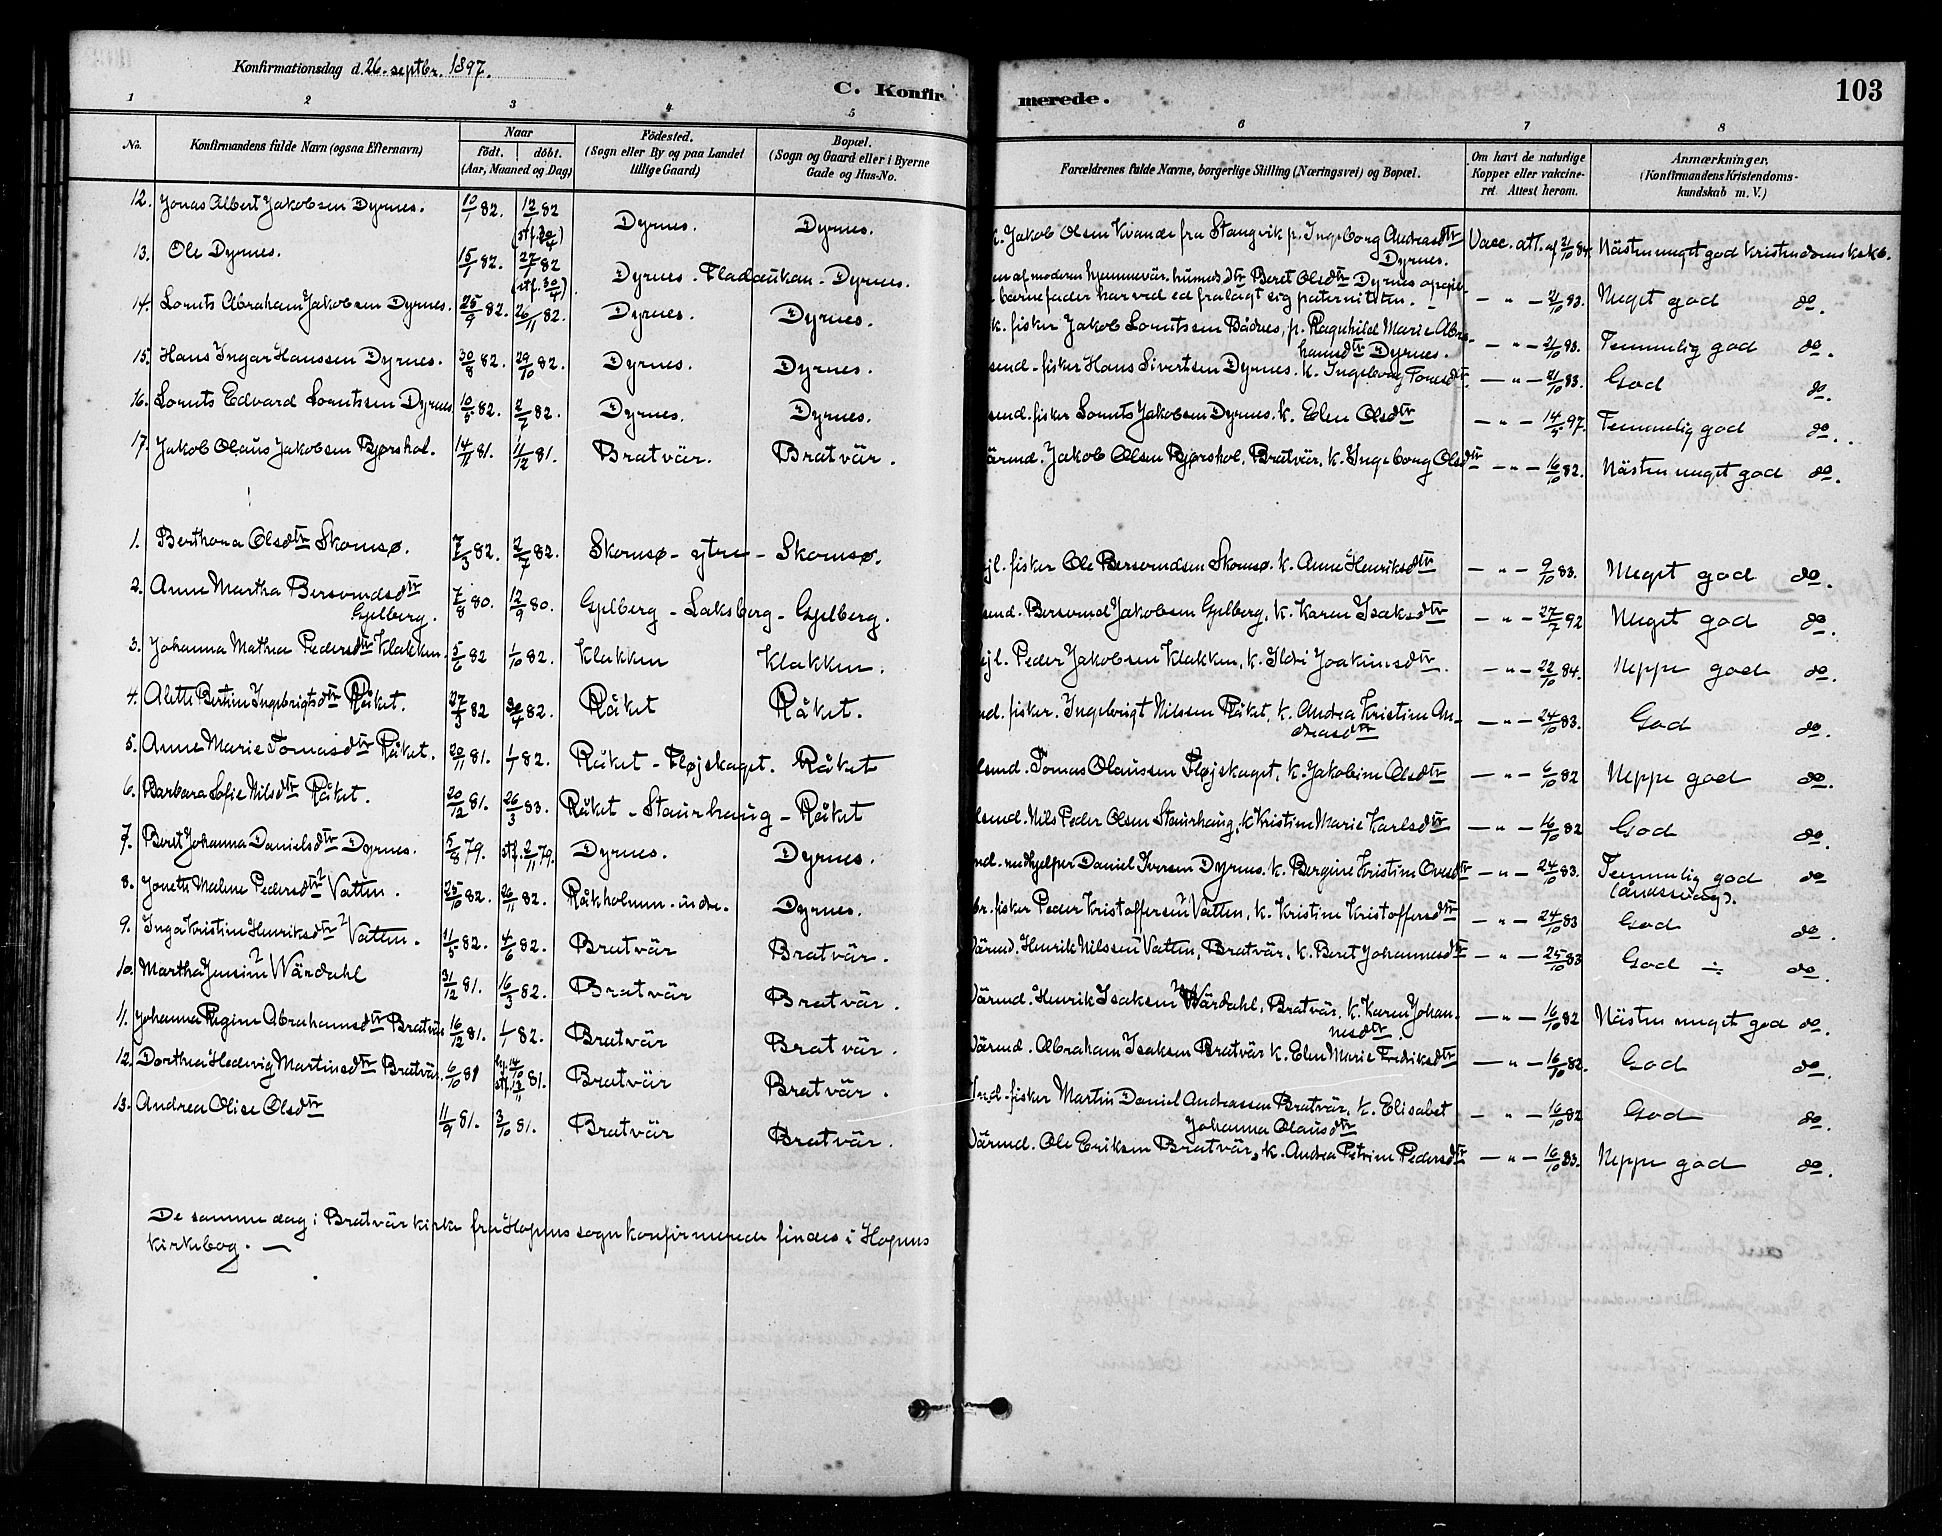 Konfirmationsdag d. 26. septbr. 1897.
C. Konfirmerede.
103
1 2 3 4 5 6 7 8
No.
Konfirmandens fulde Navn (ogsaa Efternavn)
Naar
födt. döbt.
(Aar, Maaned og Dag)
Födested.
(Sogn eller By og paa Landet
tillige Gaard)
Bopæl.
(Sogn og Gaard eller i Byerne
Gade og Hus-No.
Forældrenes fulde Navne, borgerlige Stilling (Næringsvei) og Bopæl.
Om havt de naturlige
Kopper eller vaccine-
ret. Attest herom.
Anmærkninger.
(Konfirmandens Kristendoms-
kundskab m. V.)
12. Jonas Albert Jakobsen Dyrnes. 10/1 82. 12/2 82 (stf. 30/4) Dyrnes. Dyrnes. k. Jakob Olsen Kvande fra Stangvik p. Ingeborg Andreasdtr Dyrnes. Vacc. att. af 21/10 84. Nästen meget god kristendomskskb.
13. Ole Dyrnes. 15/1 82. 27/1 82 (stf. 30/4). Dyrnes. Fladaukan - Dyrnes. af moderen hjemmevär. husmds dtr Beret Olsdtr Dyrnes opgit
barnefader har ved ed fralagt sig paterniteten. — " — 21/10 83. Meget god do.
14. Lornts Abraham Jakobsen Dyrnes. 25/9 82. 26/11 82. Dyrnes. Dyrnes. k. fisker Jakob Lorntssen Bådnes, p. Ragnhild Marie Abra-
hamsdtr Dyrnes. — " — 21/10 83. Temmelig god do.
15. Hans Ingar Hanssen Dyrnes. 30/8 82. 29/10 82. Dyrnes. Dyrnes. fisker Hans Sivertsen Dyrnes. k. Ingeborg Toresdtr. — " — 21/10 83. God do.
16. Lornts Edvard Lorntssen Dyrnes 10/5 82. 2/7 82. Dyrnes. Dyrnes. fisker Lornts Jakobsen Dyrnes. k. Elen Olsdtr — " — 14/5 97. Temmelig god do.
17. Jakob Olaus Jakobsen Bjørshol. 14/11 81. 11/12 81. Bratvär. Bratvär. Jakob Olsen Bjørshol, Bratvär, k. Ingeborg Olsdtr — " — 16/10 82. Nästen meget god do.
1. Berthona Olsdtr Skomsø. 7/3 82. 2/7 82. Skomsø - ytre - Skomsø. fisker Ole Bersvendsen Skomsø. k. Anne Henriksdtr — " — 9/10 83. Meget god do.
2. Anne Martha Bersvendsdtr
Gjelberg. 7/8 80. 12/9 80. Gjelberg - Laksberg - Gjelberg. Bersvend Jakobsen Gjelberg, k. Karen Isaksdtr — " — 27/7 92 Meget god do.
3. Johanna Mathea Pedersdtr Klakken. 5/6 82 1/10 82. Klakken Klakken. Peder Jakobsen Klakken, k. Ildri Joakimsdtr. — " — 22/10 84. Neppe god do.
4. Alette Bertine Ingebrigtsdtr Råket. 27/3 82 30/4 82. Råket Råket. fisker. Ingebrigt Nilsen Råket, k. Andrea Kristine An-
dreasdtr — " — 24/10 83. God do.
5. Anne Marie Tomasdtr Råket. 20/11 81. 1/1 82. Råket - Fløjskaget. Råket Tomas Olaussen Fløjskaget, k. Jakobine Olsdtr — " — 6/10 82 Neppe god do.
6. Barbara Sofie Nilsdtr Råket. 20/12 81. 26/3 83. Råket - Staurhaug - Råket Nils Peder Olsen Staurhaug, k Kristine Marie Karlsdtr — " — 16/10 82 God do.
7. Beret Johanna Danielsdtr Dyrnes. 5/8 79. stf. 2/11 79. Dyrnes. Dyrnes. medhjelper Daniel Iversen Dyrnes. k. Bergine Kristine Ovesdtr — " — 24/10 83. Temmelig god do
(åndssvag).
8. Jonette Maline Pedersdtr Vatten. 25/10 82. 26/11 82. Råkholmen - indre. Dyrnes. fisker Peder Kristoffersen Vatten, k. Kristine Kristoffersdtr — " — 24/10 83 God do.
9. Inga Kristine Henriksdtr Vatten. 11/5 82. 4/6 82. Bratvär Bratvär. Henrik Nilssen Vatten, Bratvär, k. Beret Johannesdtr — " — 25/10 83 God ÷ do.
10. Martha Jensine Wärdahl 31/12 81. 16/3 82. Bratvär Bratvär. Henrik Isaksen Wärdahl, Bratvär, k. Karen Johan-
nesdtr. — " — 16/10 82 Nästen meget god do.
11. Johanna Regine Abrahamsdtr Bratvär 16/12 81. 1/1 82. Bratvär Bratvär. Värmd. Abraham Isaksen Bratvär k. Elen Marie Fredriksdtr — " — 16/10 82. God do.
12. Dorthea Hedevig Martinsdtr Bratvär. 6/10 81 14/10 stf. 13/11 81. Bratvär Bratvär. Ind. fisker Martin Daniel Andreassen Bratvär, k. Elisabet
Johanna Olausdtr — " — 16/10 82 God do.
13. Andrea Olise Olsdtr 11/9 81. 3/10 81. Bratvär Bratvär. Värmd. Ole Eriksen Bratvär, k. Andrea Petrine Pedersdtr — " — 16/10 83. Neppe god do.
De samme dag i Bratvär kirke fra Hopens sogn konfirmerede findes i Hopens
kirkebog. —